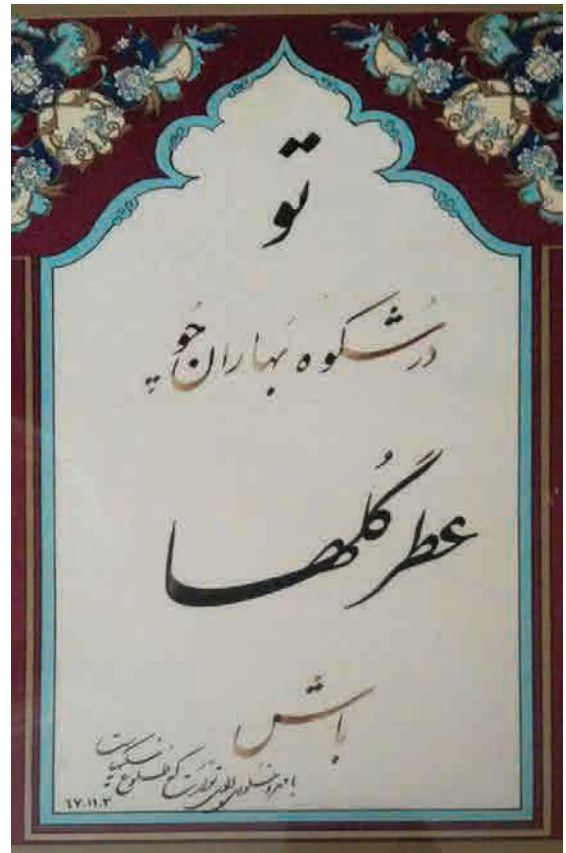 تو
در شکوه بهاران چو
عطر گلها
باش
۶۷.۱۱.۳